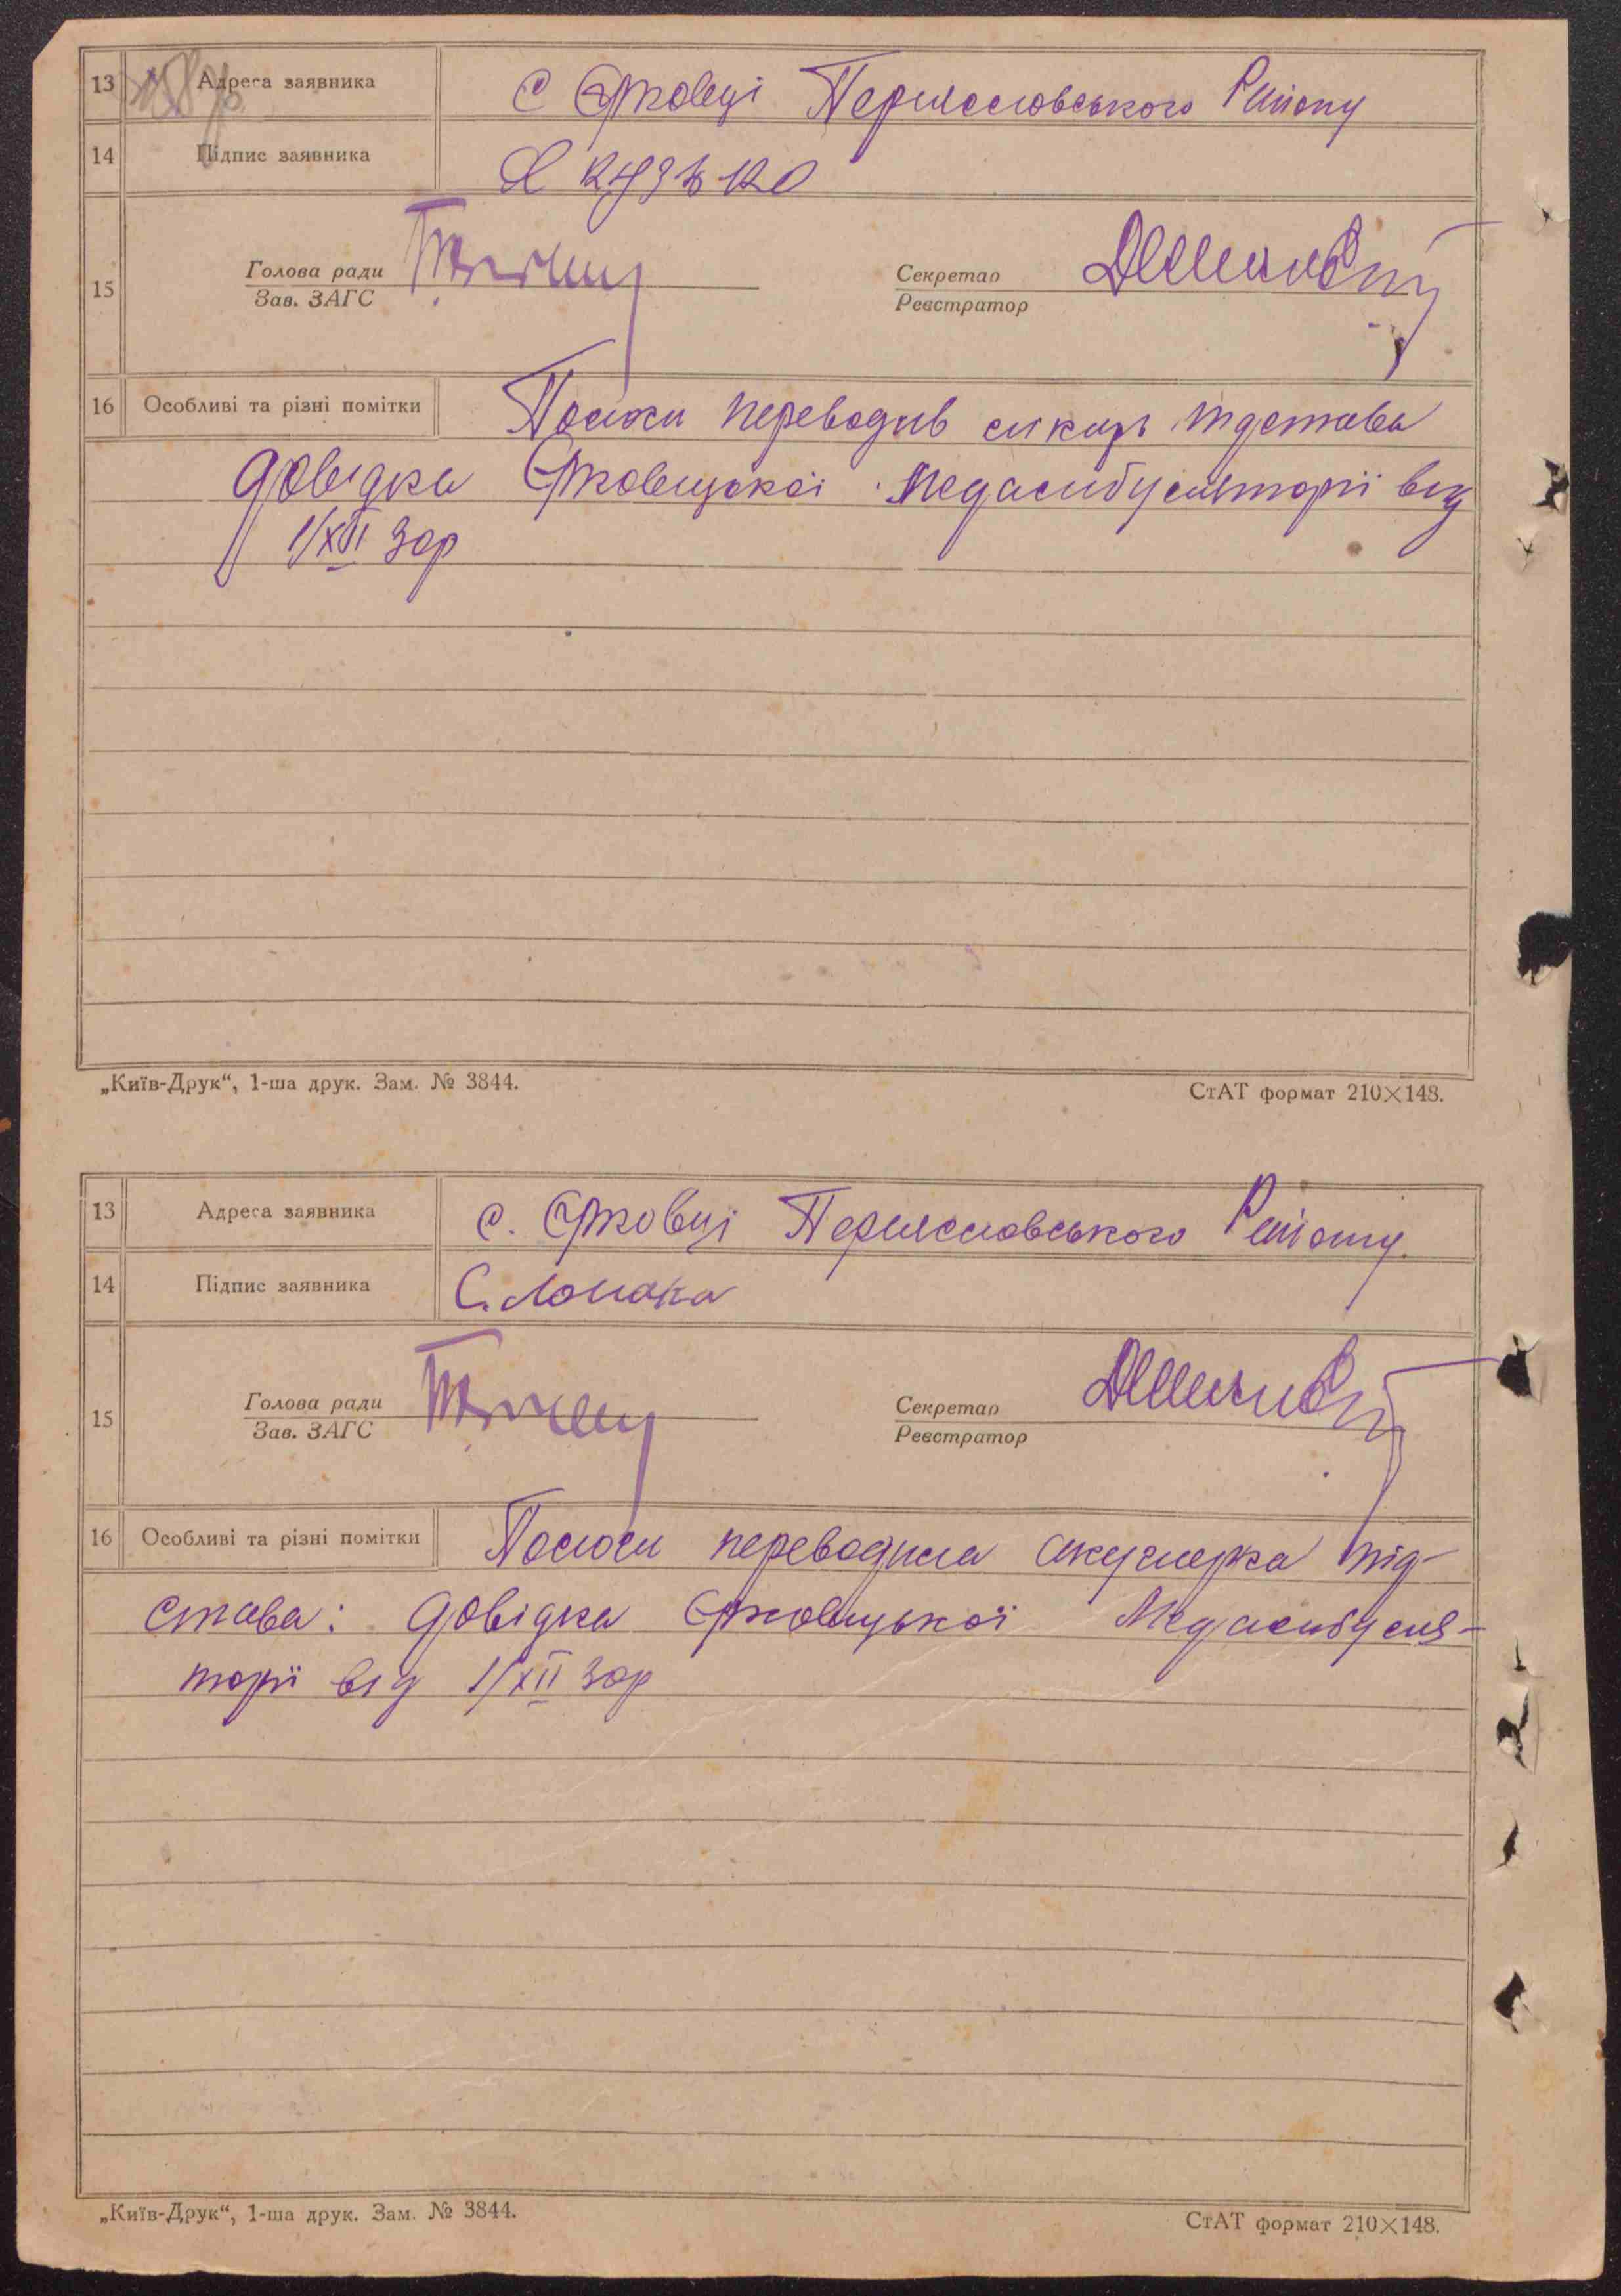 13 Адреса заявника с Єрковці Переяславського Району
14 Підпис заявника Я Кузько
Голова ради Секретар
15
Зав. ЗАГС Реєстратор
16 Особливі та різні помітки переводив лікарь підстава
довідка Єрковецької Медамбуляторії від
1/XII 30р
„Київ-Друк“, 1-ша друк. Зам. № 3844. СтАТ формат 210×148.
13 Адреса заявника с. Єрковці Переяславського Району
14 Підпис заявника С.
Голова ради Секретар
15
Зав. ЗАГС Реєстратор
16 Особливі та різні помітки Пологи переводила акушерка під-
става: довідка Єрковецької Медамбуля-
торії від 1/XII 30р
„Київ-Друк“, 1-ша друк. Зам. № 3844. СтАТ формат 210×148.